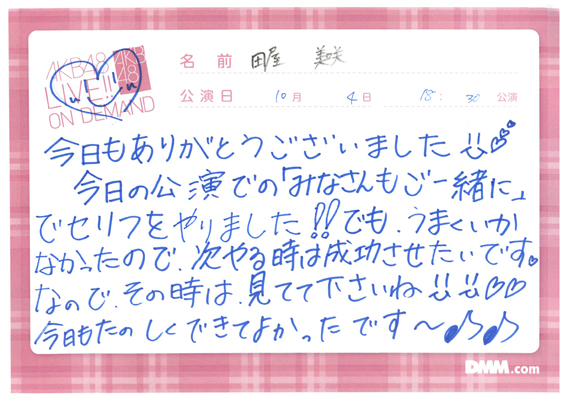 AKB48
LIVE!!
ON DEMAND
AKB
48
名前 田屋 美咲
公演日 10月 4日 18:30 公演
今日もありがとうございました
今日の公演での「みなさんもご一緒に」
でセリフをやりました!!でも、うまくいか
なかったので、次やる時は成功させたいです。
なので、その時は、見てて下さいね
今日もたのしくできてよかったです〜♪♪
DMM.com